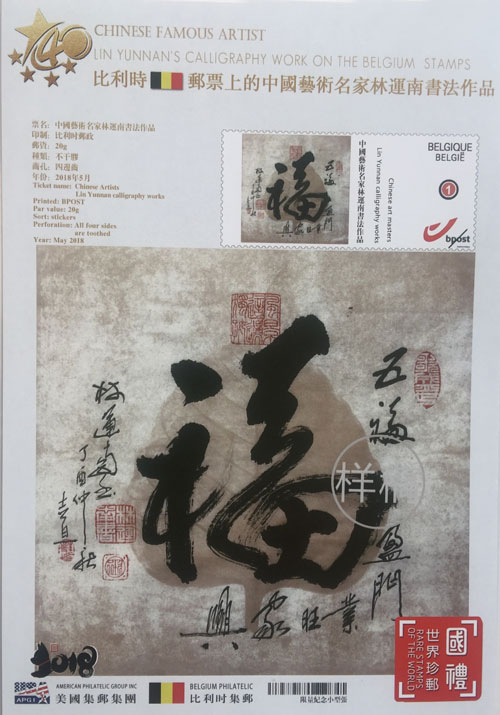 40
CHINESE FAMOUS ARTIST
LIN YUNNAN'S CALLIGRAPHY WORK ON THE BELGIUM STAMPS
比利時郵票上的中國藝術名家林運南書法作品
票名：中國藝術名家林運南書法作品
印制：比利时邮政
郵資：20g
種類：不干膠
齒孔：四邊齒
年份：2018年5月
Ticket name: Chinese Artists
Lin Yunnan calligraphy works
Printed: BPOST
Par value: 20g
Sort: stickers
Perforation: All four sides
are toothed
Year: May 2018
福
五福
盈門
興家旺業
中國藝術名家林運南書法作品
Lin Yunnan calligraphy works
Chinese art masters
BELGIQUE
BELGIË
1
bpost
五福
盈門
興家旺業
福
林運南書
丁酉仲秋
吉日
样
2018
國禮
世界珍郵
RARE STAMPS
OF THE WORLD
APGI
AMERICAN PHILATELIC GROUP INC
美國集郵集團
BELGIUM PHILATELIC
比利时集郵
限量紀念小型張